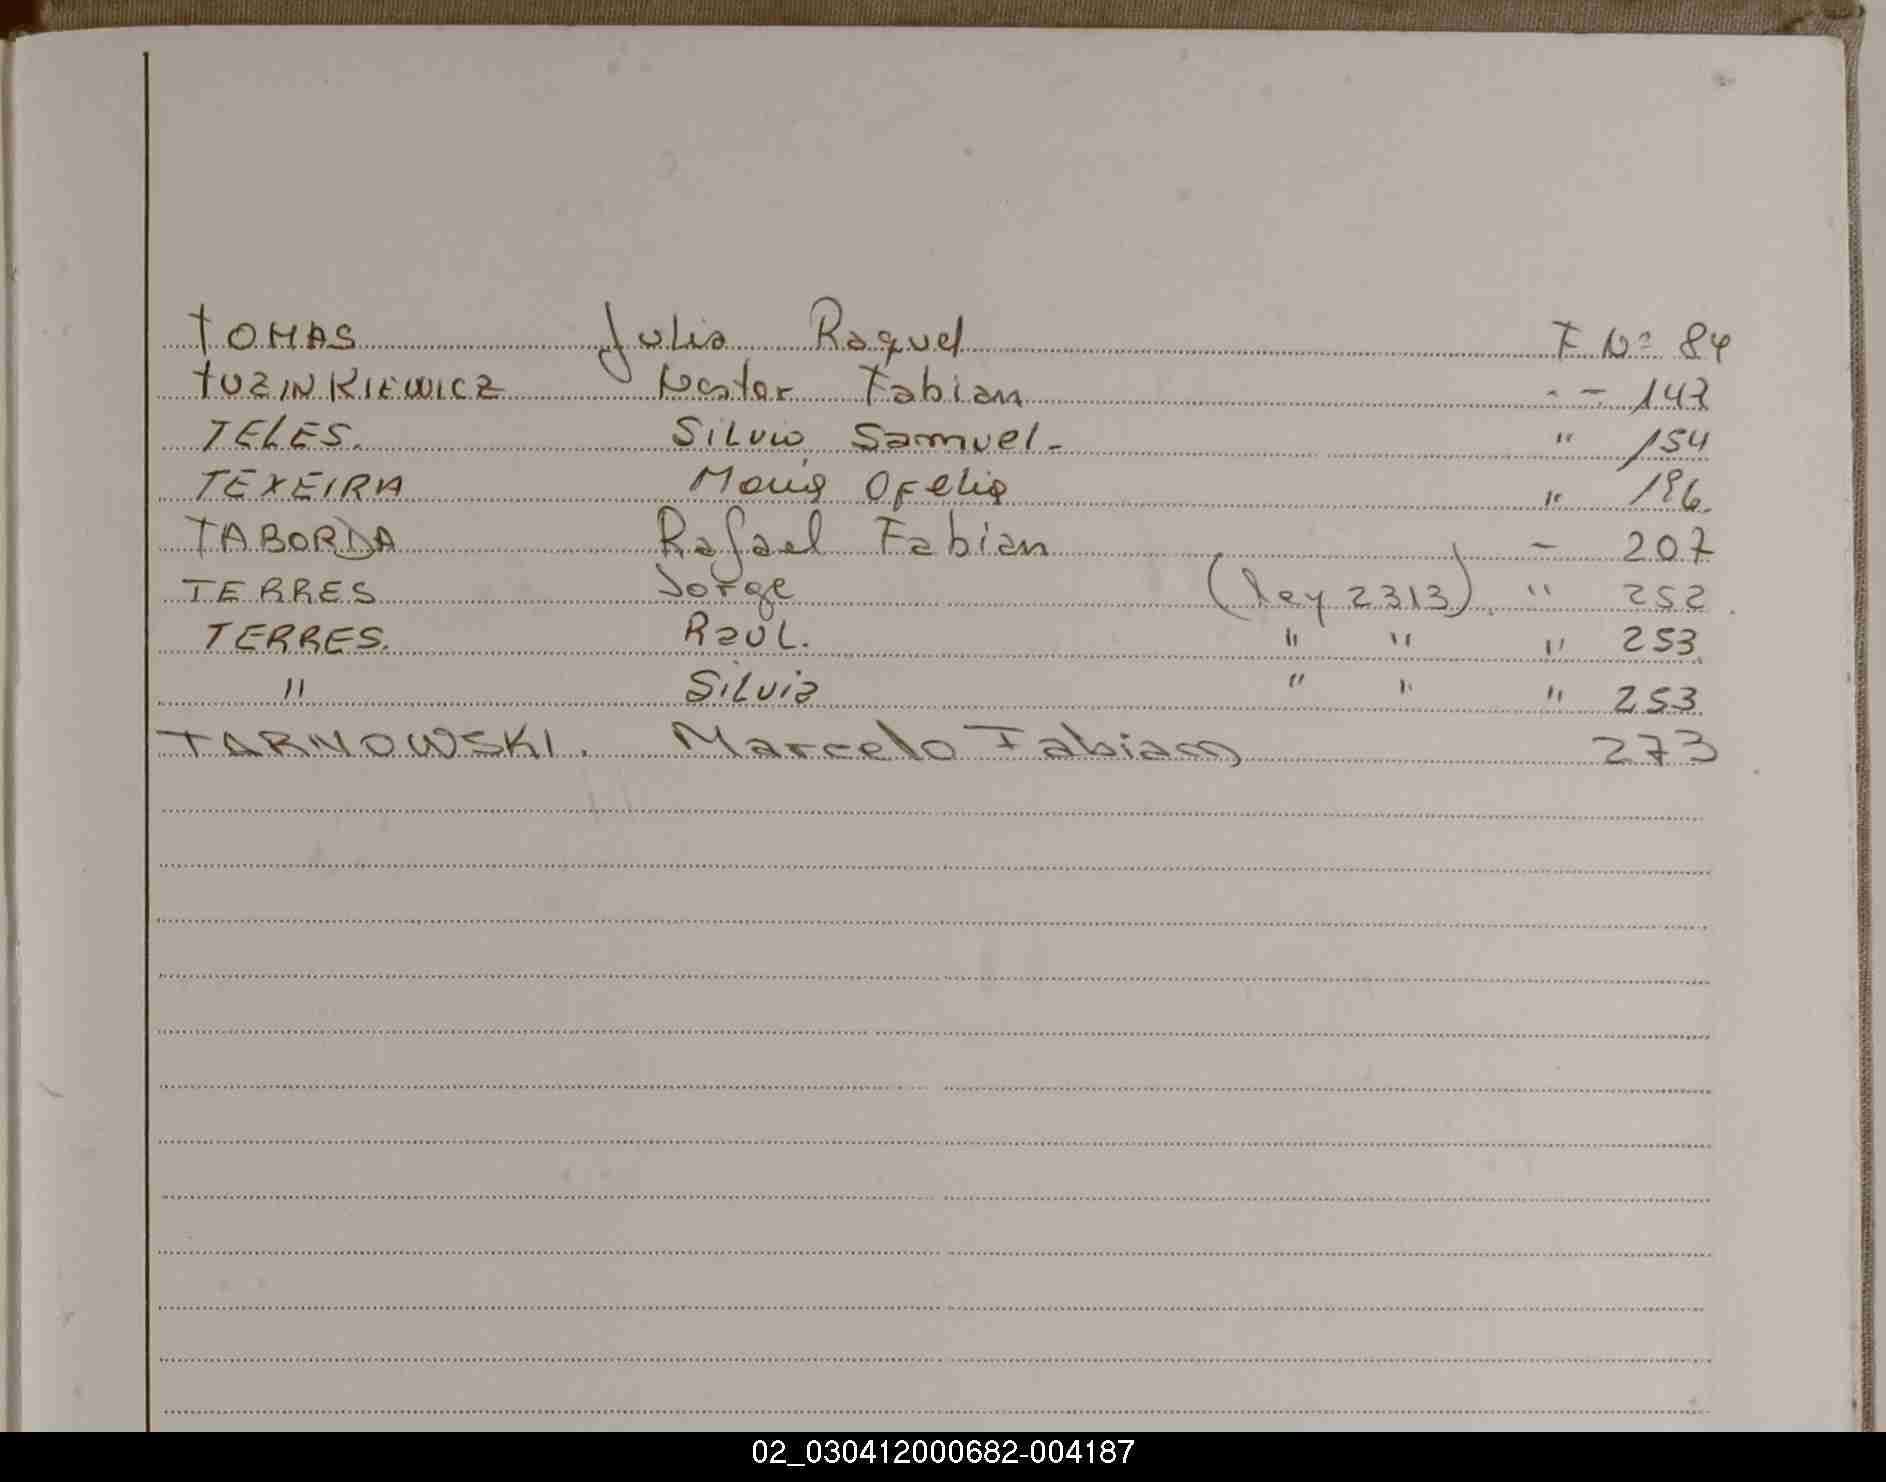 TOMAS Julia Raquel F Nº 84
TUZINKIEWICZ Nestor Fabian " - 147
TELES. Silvio Samuel - " 154
TEXEIRA Maria Ofelia " 196.
TABORDA Rafael Fabian - 207
TERRES Jorge (ley 2313). " 252.
TERRES. Raul. " " " 253
" Silvia " " " 253
TARNOWSKI. Marcelo Fabian 273
02_030412000682-004187